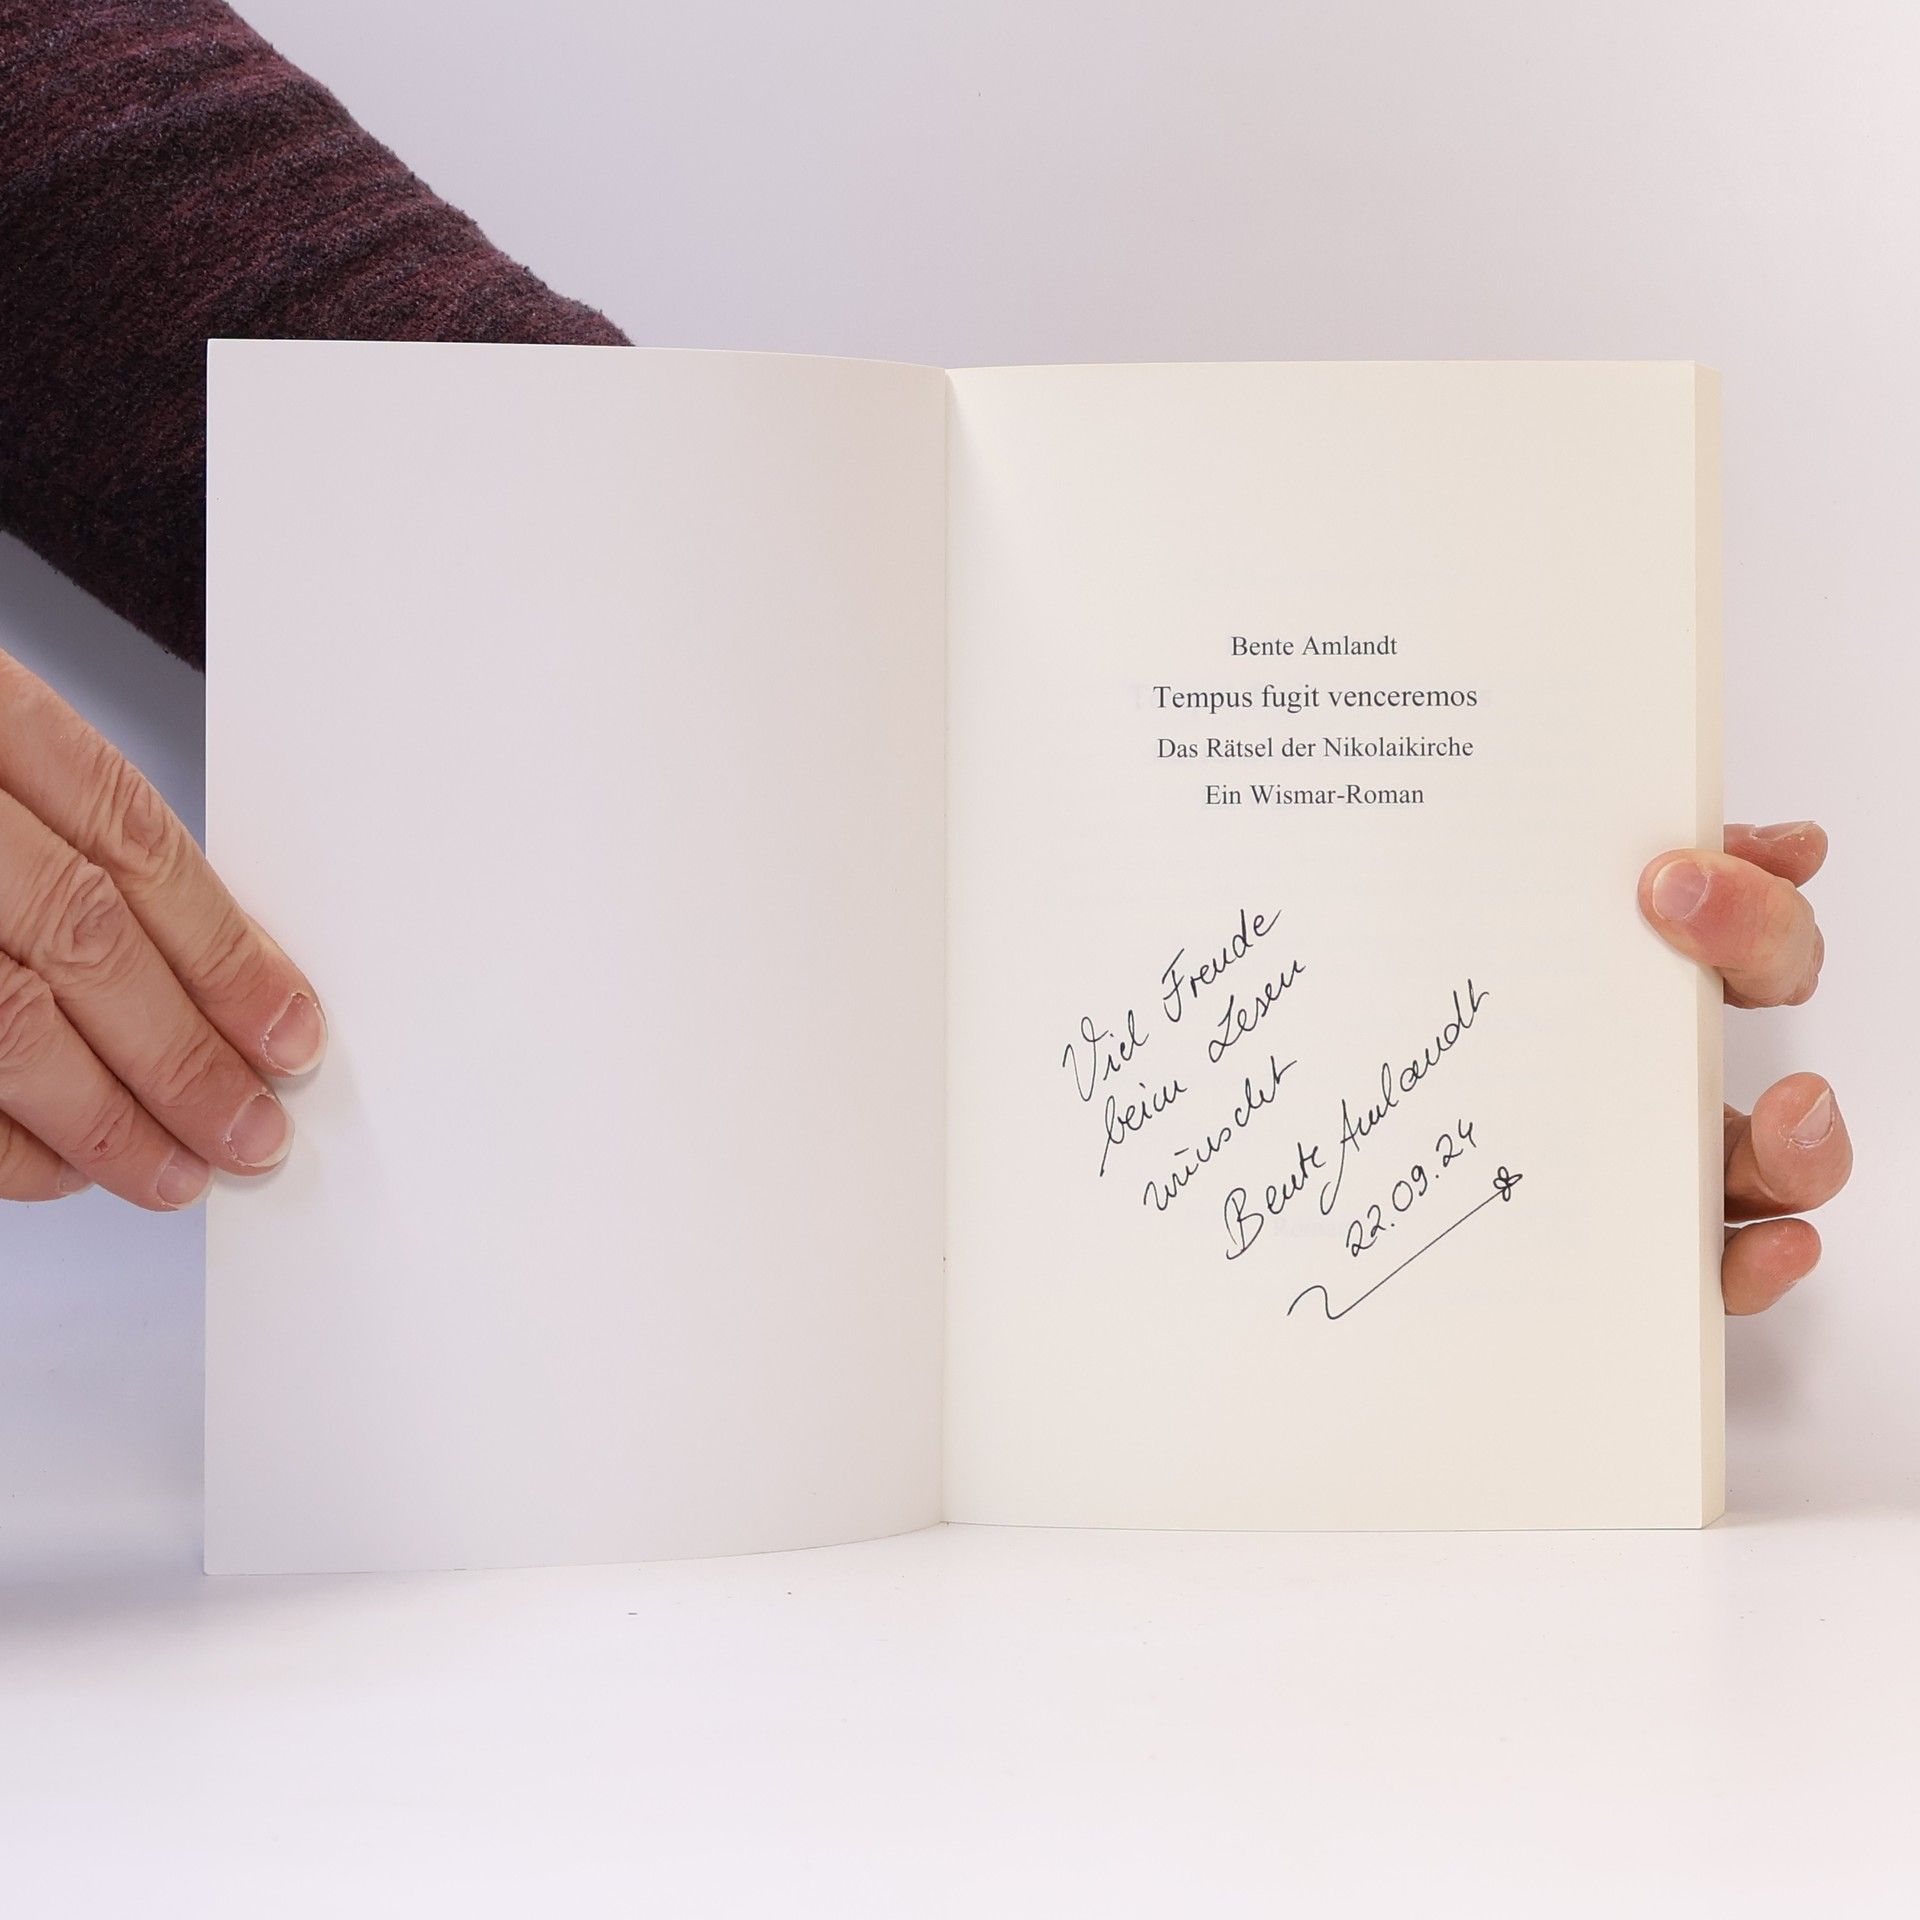 Bente Amlandt
Tempus fugit venceremos
Das Rätsel der Nikolaikirche
Ein Wismar-Roman
Viel Freude
beim Lesen
wünscht
Bente Amlandt
22.09.24